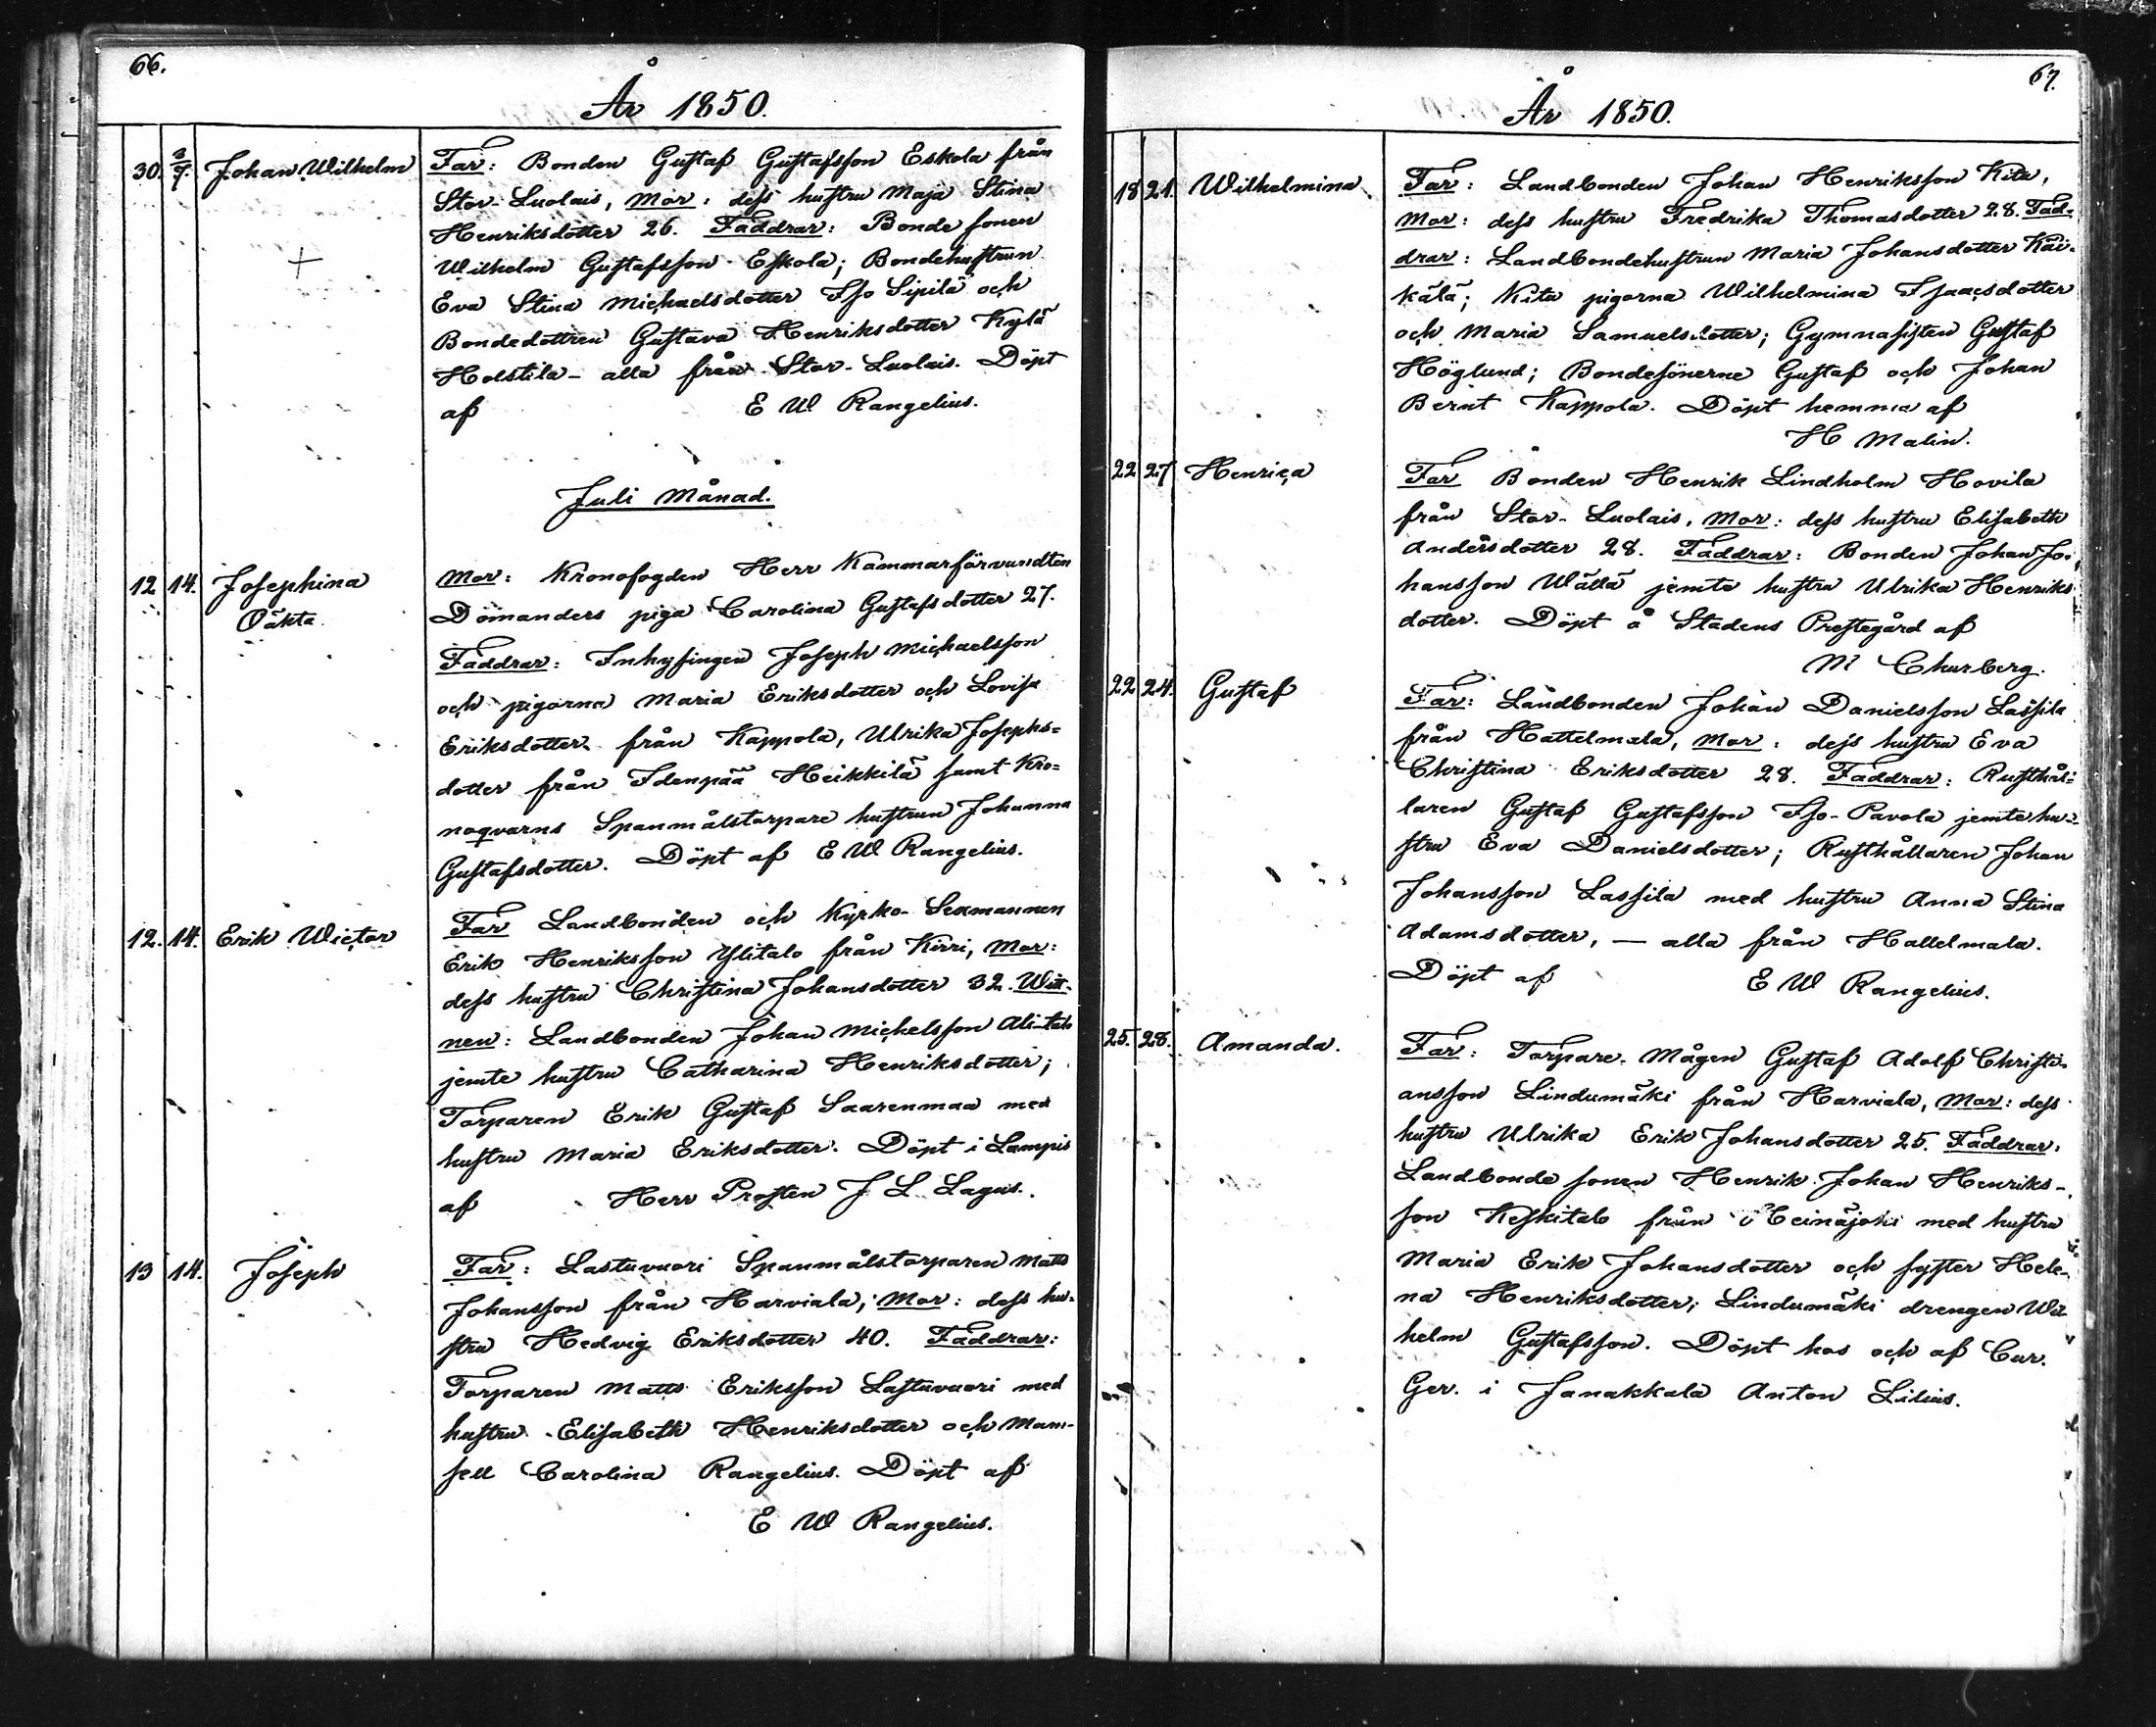 66.
År 1850.
30. 3/7. Johan Wilhelm
Far: Bonden Gustaf Gustafsson Eskola från
Stor-Luolais, Mor: dess hustru Maja Stina
Henriksdotter 26. Faddrar: Bonde sonen
Wilhelm Gustafsson Eskola; Bondehustrun
Eva Stina Michaelsdotter Iso Sipilä och
Bondedottren Gustava Henriksdotter Kylä
Holstila - alla från Stor-Luolais. Döpt
af E W Rangelius.
Juli Månad.
12 14. Josephina
Oäkta.
Mor: Kronofogden Herr Kammarförvandten
Dömanders piga Carolina Gustafsdotter 27.
Faddrar: Inhysingen Joseph Michaelsson
och pigorna Maria Eriksdotter och Lovisa
Eriksdotter från Kappola, Ulrika Josephs=
dotter från Idenpää Heikkilä samt Kro=
noqvarns Spanmålstorpare hustrun Johanna
Gustafsdotter. Döpt af E W Rangelius.
12. 14. Erik Wictor
Far Landbonden och Kyrko-Sexmannen
Erik Henriksson Ylitalo från Kirri, Mor:
dess hustru Christina Johansdotter 32. Witt-
nen: Landbonden Johan Michelsson Ali-talo
jemte hustru Catharina Henriksdotter;
Torparen Erik Gustaf Saarenmaa med
hustru Maria Eriksdotter. Döpt i Lampis
af Herr Prosten J L Lagus.
13 14. Joseph
Far: Lastuvuori Spanmålstorparen Matts
Johansson från Harviala; Mor: dess hu-
stru Hedvig Eriksdotter 40. Faddrar:
Torparen Matts Eriksson Lastuvuori med
hustru Elisabeth Henriksdotter och Mam-
sell Carolina Rangelius. Döpt af
E W Rangelius.
67.
År 1850.
18 21. Wilhelmina
Far: Landbonden Johan Henriksson Kita,
Mor: dess hustru Fredrika Thomasdotter 28. Fad-
drar: Landbondehustrun Maria Johansdotter Käi-
kälä; Kita pigorna Wilhelmina Isaacsdotter
och Maria Samuelsdotter; Gymnasisten Gustaf
Höglund; Bondesönerne Gustaf och Johan
Bernt Kappola. Döpt hemma af
H Malin.
22 27 Henrica
Far Bonden Henrik Lindholm Hovila
från Stor-Luolais, Mor: dess hustru Elisabeth
Andersdotter 28. Faddrar: Bonden Johan Jo-
hansson Wällä jemte hustru Ulrika Henriks
dotter. Döpt å Stadens Prestegård af
M Churberg.
22 24. Gustaf
Far: Landbonden Johan Danielsson Lassila
från Hattelmala, Mor: dess hustru Eva
Christina Eriksdotter 28. Faddrar: Rusthål=
laren Gustaf Gustafsson Iso-Pavola jemte hu-
stru Eva Danielsdotter; Rusthållaren Johan
Johansson Lassila med hustru Anna Stina
Adamsdotter, — alla från Hattelmala.
Döpt af E W Rangelius.
25. 28. Amanda.
Far: Torpare-Mågen Gustaf Adolf Christi-
ansson Lindumäki från Harviala, Mor: dess
hustru Ulrika Erik Johansdotter 25. Faddrar:
Landbonde sonen Henrik Johan Henriks-
son Keskitalo från Heinäjoki med hustru
Maria Erik Johansdotter och syster Hele-
na Henriksdotter; Lindumäki drengen Wil
helm Gustafsson. Döpt hos och af Cur.
Ger. i Janakkala Anton Lilius.